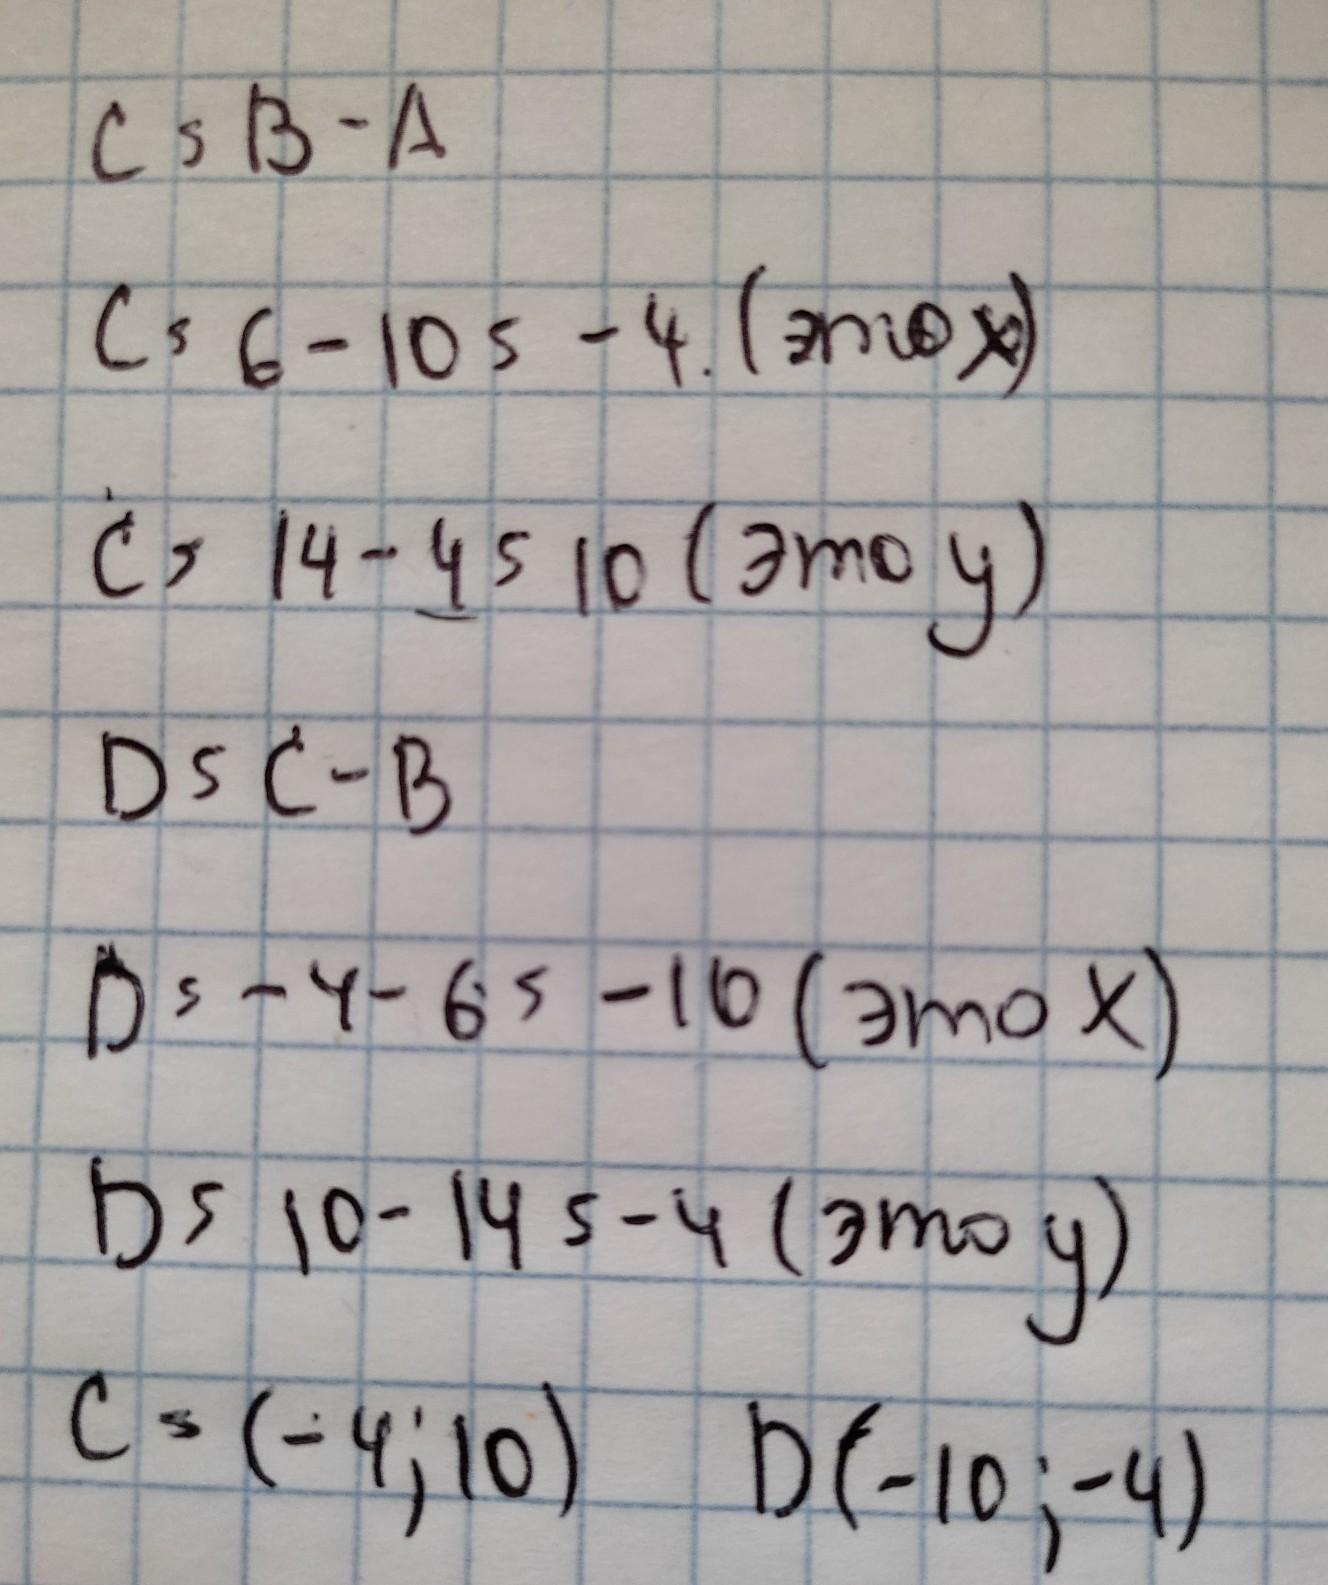 C = B - A
C = 6 - 10 = -4. (это x)
C = 14 - 4 = 10 (это y)
D = C - B
D = -4 - 6 = -10 (это x)
D = 10 - 14 = -4 (это y)
C = (-4; 10) D(-10; -4)